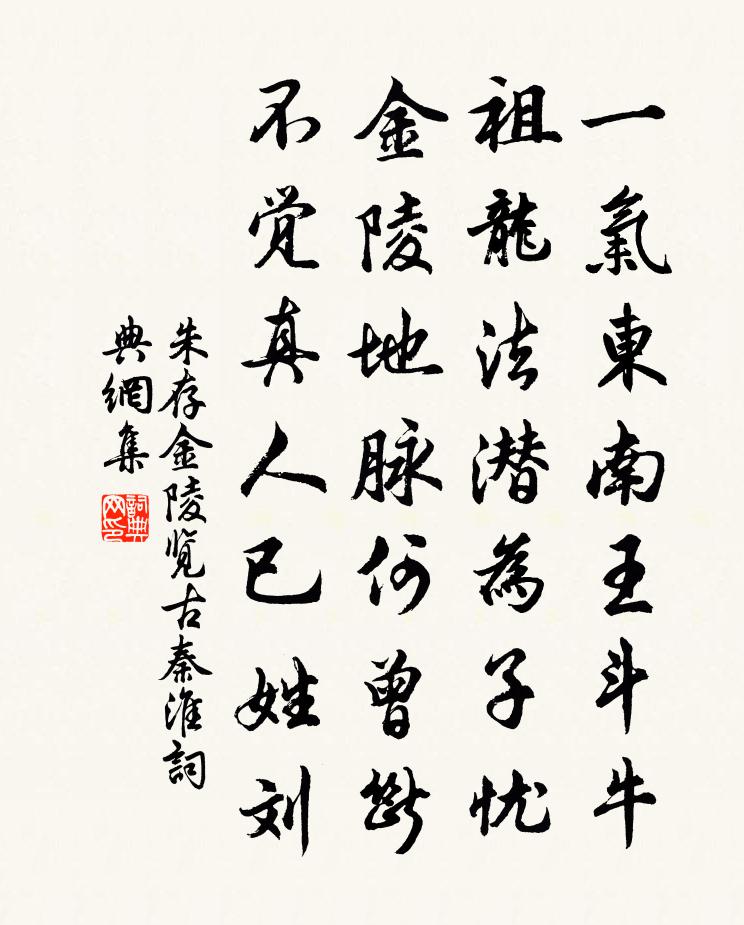 一氣東南王斗牛
祖龍法潜為子忧
金陵地脉何曾斷
不覚真人已姓刘
朱存金陵覧古秦淮詞
典網集
詞典
网印